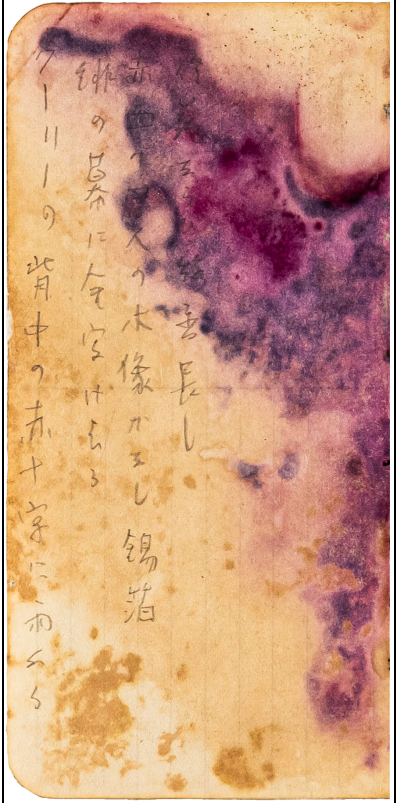 長し
赤面の 人の木像かなし 錫箔
緋の幕に金字はえる
クーリーの背中の赤十字に雨ふる